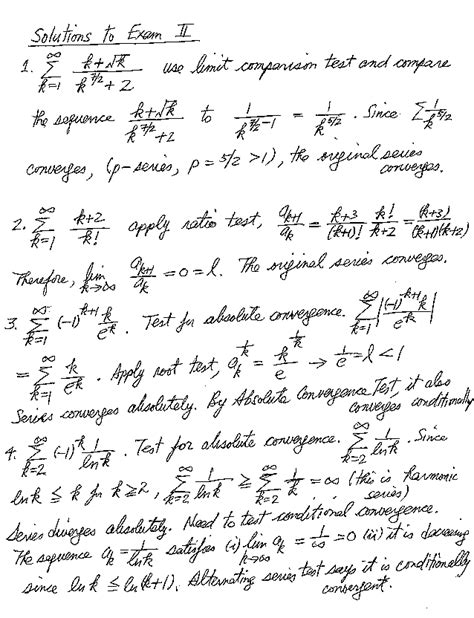 Solutions to Exam II
1. ∞ Σ k=1 (k+√k)/(k^{7/2}+2) use limit comparison test and compare
the sequence (k+√k)/(k^{7/2}+2) to 1/k^{7/2-1} = 1/k^{5/2}. Since Σ 1/k^{5/2}
converges, (p-series, p = 5/2 > 1), the original series converges.
2. ∞ Σ k=1 (k+2)/k! apply ratio test, a_{k+1}/a_k = (k+3)/(k+1)! k!/(k+2) = (k+3)/((k+1)(k+2))
Therefore, lim k→∞ a_{k+1}/a_k = 0 = l. The original series converges.
3. ∞ Σ k=1 (-1)^{k+1} k/e^k. Test for absolute convergence. ∞ Σ k=1 |(-1)^{k+1} k/e^k|
= ∞ Σ k=1 k/e^k. Apply root test, a_k^{1/k} = k^{1/k}/e → 1/e = l < 1
Series converges absolutely. By Absolute Convergence Test, it also converges conditionally
4. ∞ Σ k=2 (-1)^k 1/ln k. Test for absolute convergence. ∞ Σ k=2 1/ln k. Since
ln k ≤ k for k ≥ 2, ∞ Σ k=2 1/ln k ≥ ∞ Σ k=2 1/k = ∞ (this is harmonic series)
Series diverges absolutely. Need to test conditional convergence.
The sequence a_k = 1/ln k satisfies (i) lim k→∞ a_k = 1/∞ = 0 (ii) it is decreasing
since ln k ≤ ln(k+1). Alternating series test says it is conditionally convergent.